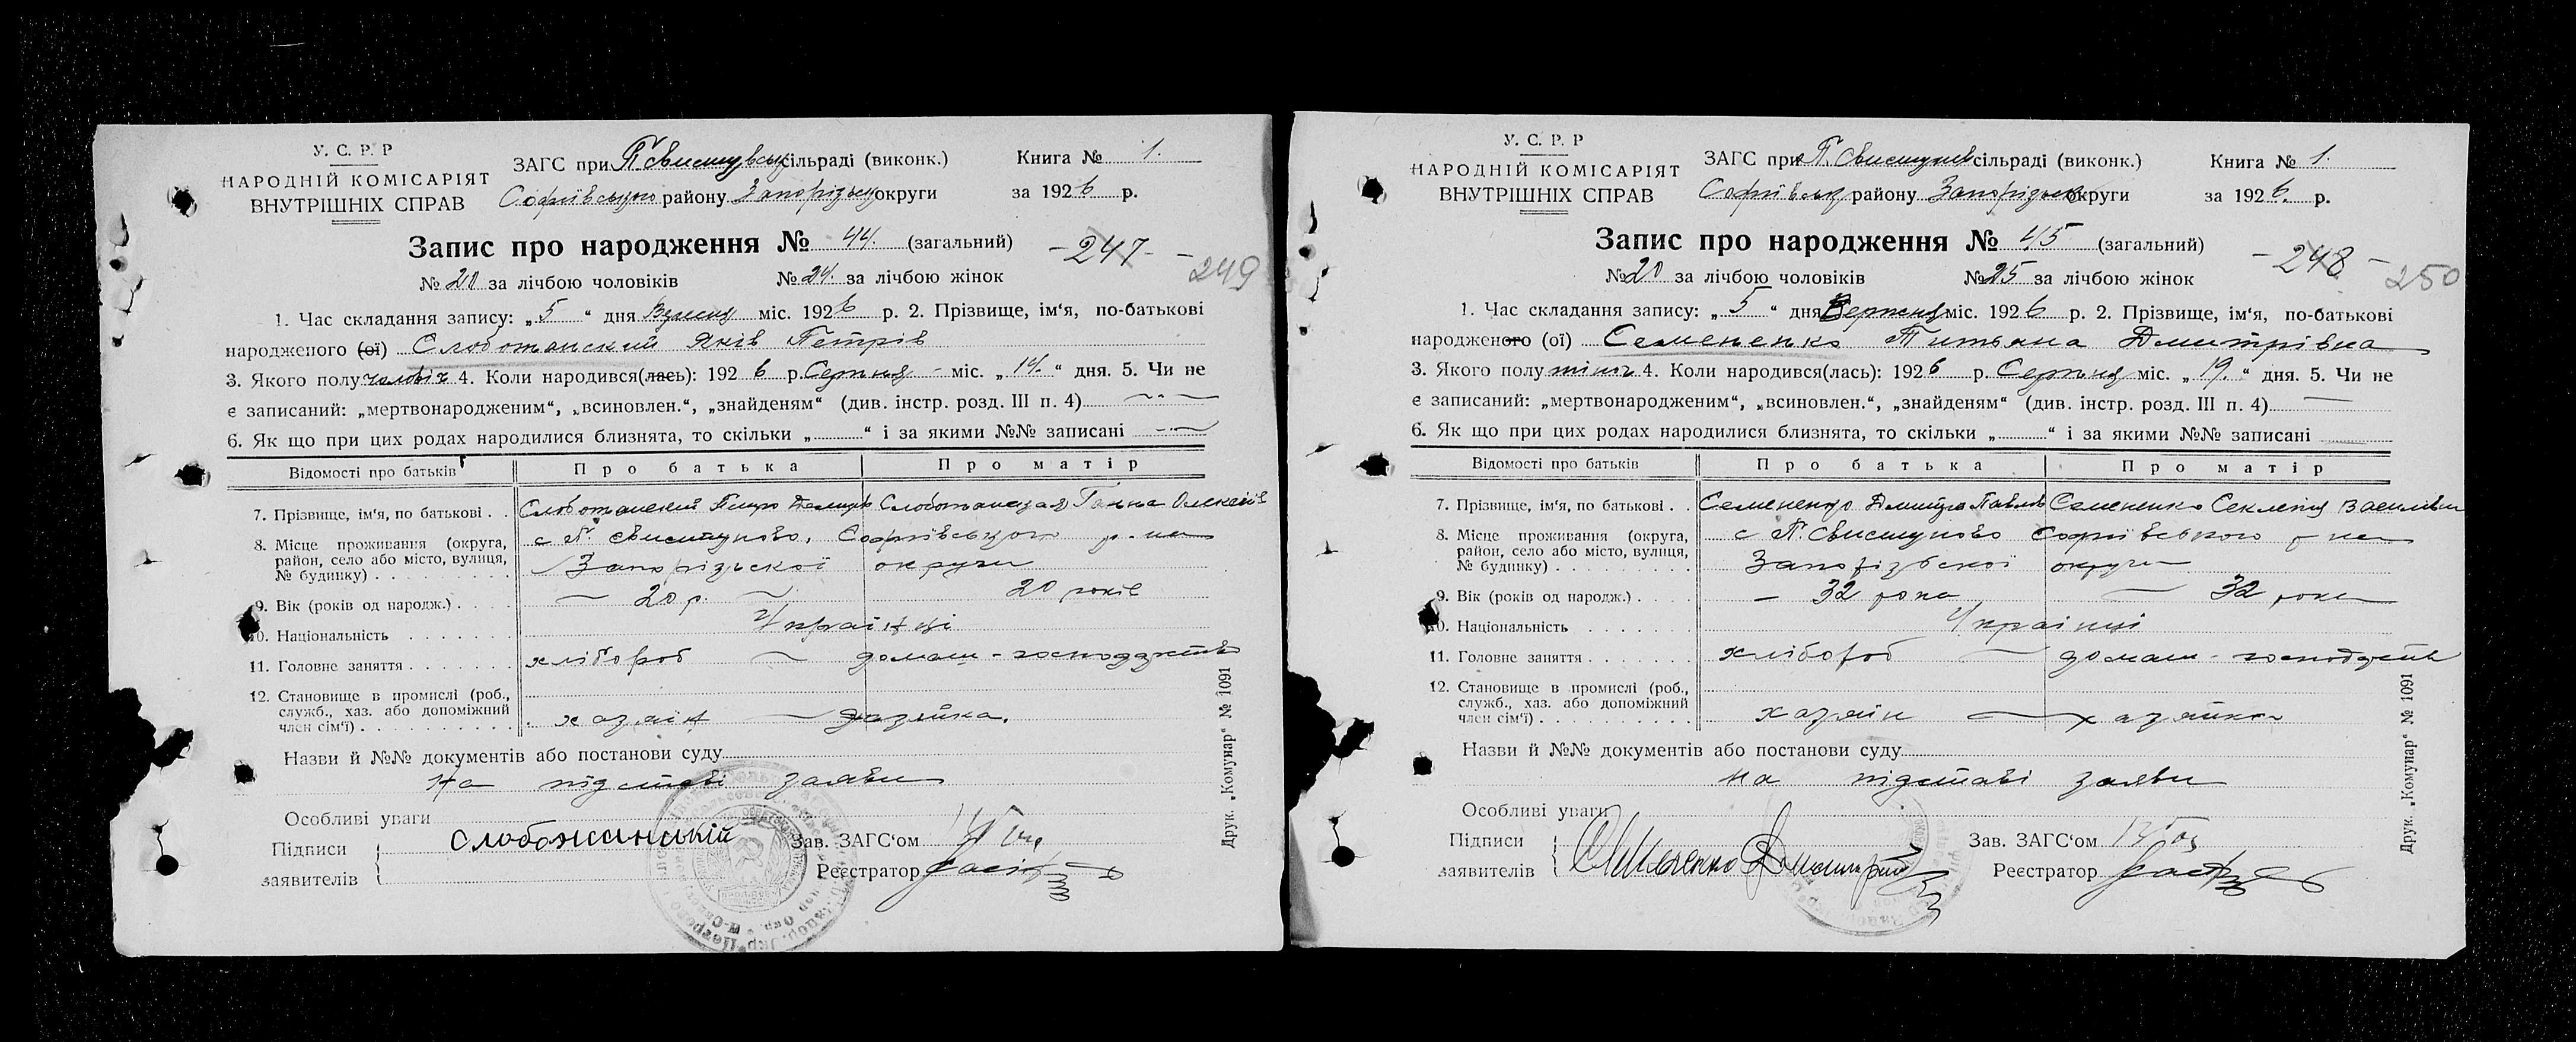 У. С. Р. Р
НАРОДНІЙ КОМІСАРІЯТ
ВНУТРІШНІХ СПРАВ
ЗАГС при П. Свистунівськ сільраді (виконк.) Книга № 1.
Софіївського району Запорізьк округи за 1926 р.
Запис про народження № 44. (загальний)
-247- -249
№ 20 за лічбою чоловіків № 24. за лічбою жінок
1. Час складання запису: „5“ дня міс. 1926 р. 2. Прізвище, ім‘я, по-батькові
народженого (ої) Слобожанский Яків Петрів
3. Якого полу чоловіч 4. Коли народився(лась): 1926 р. Серпня - міс. „14.“ дня. 5. Чи не
є записаний: „мертвонародженим“, „всиновлен.“, „знайденям“ (див. інстр. розд. III п. 4)
6. Як що при цих родах народилися близнята, то скільки „ “ і за якими №№ записані
Відомості про батьків Про батька Про матір
7. Прізвище, ім‘я, по батькові . . Слобожанский Петро Слобожанская Ганна Олексіїв
8. Місце проживання (округа, район, село або місто, вулиця, № будинку) с П. Свистуново, Софіївського р-на
Запорізької округи
9. Вік (років од народж.) 20 р. 20 років
10. Національність Українці
11. Головне заняття хлібороб домаш - господарство
12. Становище в промислі (роб., служб., хаз. або допоміжний член сім‘ї) хазяїн хазяйка.
Назви й №№ документів або постанови суду
На підставі заяви
Особливі уваги
Підписи заявителів Слобожанській
Зав. ЗАГС‘ом
Реєстратор
Друк. „Комунар“ № 1091
У. С. Р. Р
НАРОДНІЙ КОМІСАРІЯТ
ВНУТРІШНІХ СПРАВ
ЗАГС при П. Свистунів сільраді (виконк.) Книга № 1.
Софіївськ району Запорізьк округи за 1926. р.
Запис про народження № 45 (загальний)
-248- 250
№ 20 за лічбою чоловіків № 25 за лічбою жінок
1. Час складання запису: „5“ дня міс. 1926 р. 2. Прізвище, ім‘я, по-батькові
народженого (ої) Семененко Титьяна Дмитрівна
3. Якого полу жіноч 4. Коли народився(лась): 1926 р. Серпня міс. „19.“ дня. 5. Чи не
є записаний: „мертвонародженим“, „всиновлен.“, „знайденям“ (див. інстр. розд. III п. 4)
6. Як що при цих родах народилися близнята, то скільки „ “ і за якими №№ записані
Відомості про батьків Про батька Про матір
7. Прізвище, ім‘я, по батькові . . Семененко Дмитро Павлов Семененко Секлетія Василівн
8. Місце проживання (округа, район, село або місто, вулиця, № будинку) с П. Свистуново Софіївського р-на
Запорізьської округи
9. Вік (років од народж.) 32 роки 32 роки
10. Національність Українці
11. Головне заняття хлібороб домаш - господарств
12. Становище в промислі (роб., служб., хаз. або допоміжний член сім‘ї) хазяїн хазяйка
Назви й №№ документів або постанови суду
На підставі заяви
Особливі уваги
Підписи заявителів Семененко Дмитрий
Зав. ЗАГС‘ом
Реєстратор
Друк. „Комунар“ № 1091